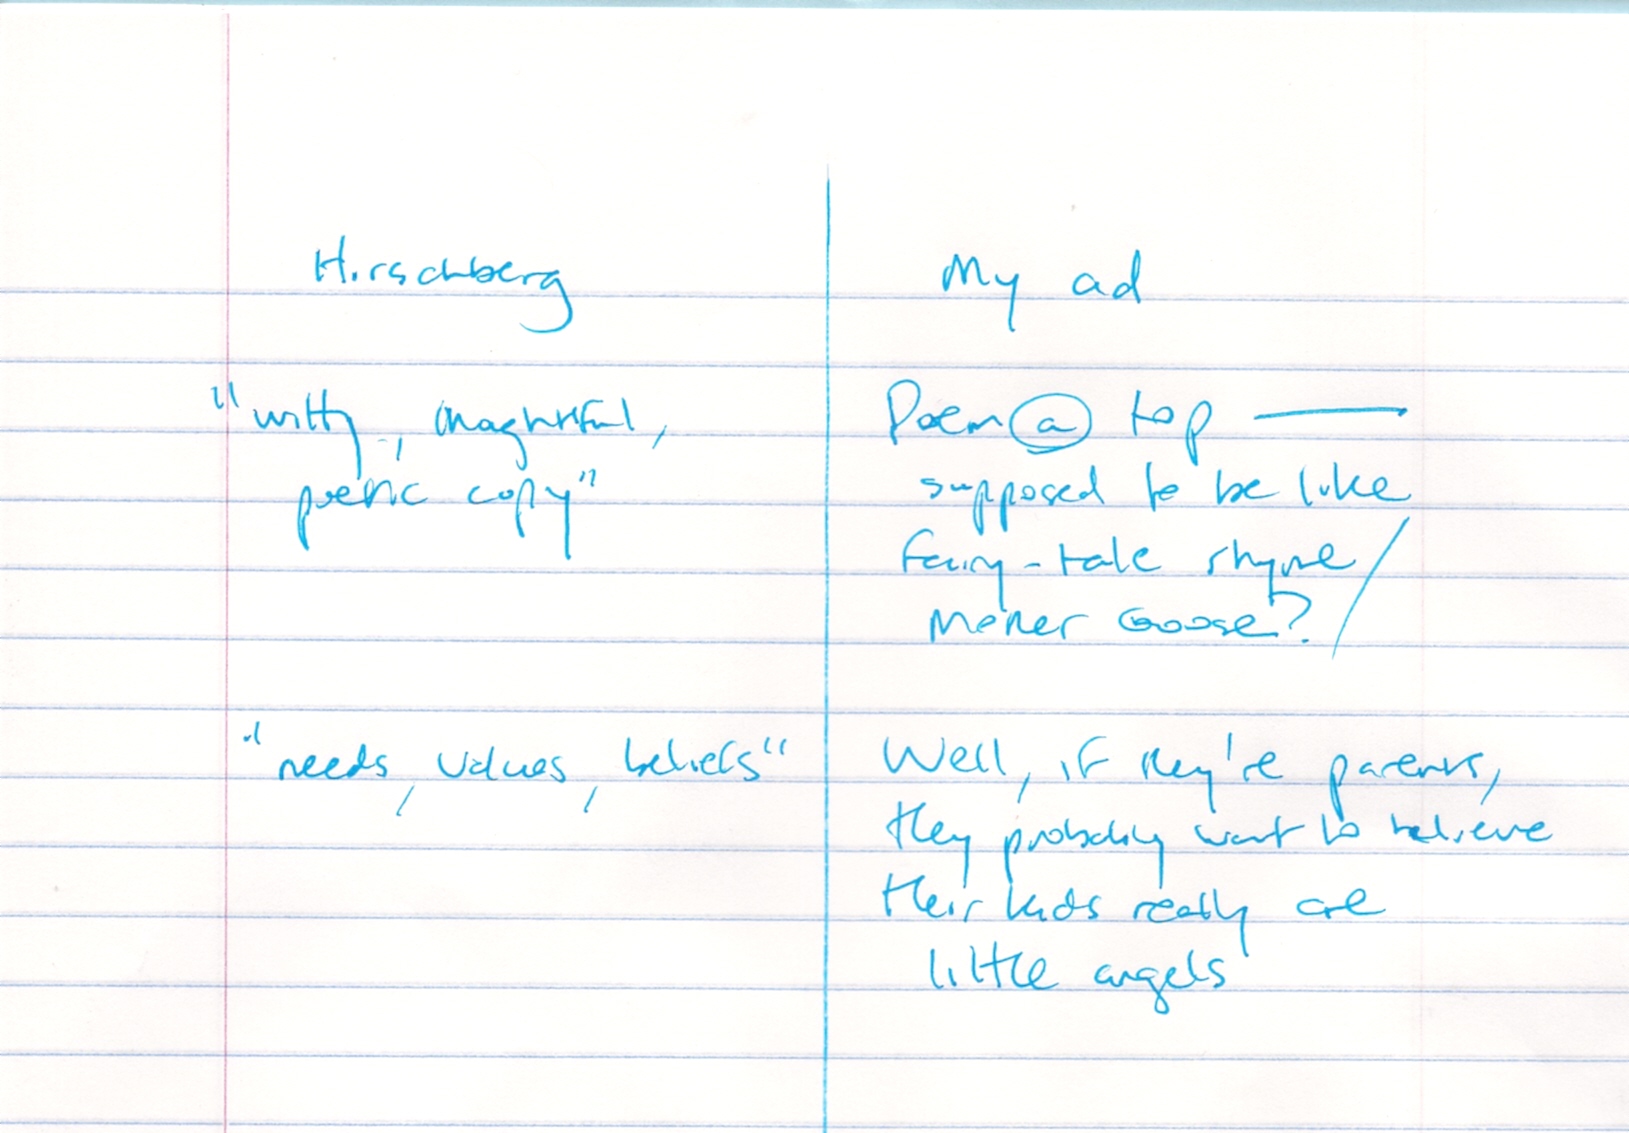 Hirschberg
"witty, thoughtful,
poetic copy"
"needs, values, beliefs"
My ad
Poem @ top —
supposed to be like
fairy-tale rhyme/
Mother Goose?
Well, if they're parents,
they probably want to believe
their kids really are
little angels